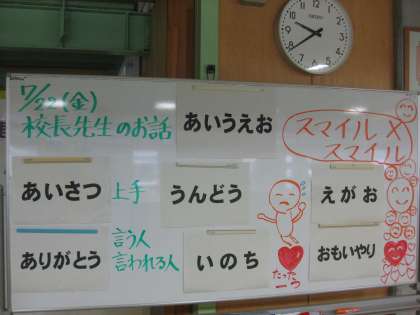 7/22(金)
校長先生のお話
あいうえお
スマイル×
スマイル
あいさつ
上手
うんどう
えがお
ありがとう
言う人
言われる人
いのち
たった
一つ
おもいやり